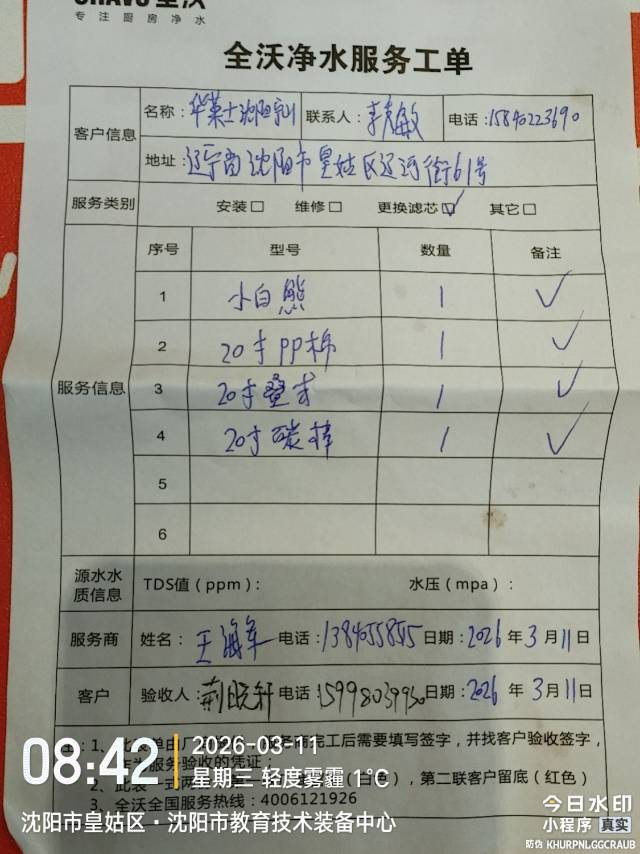 专注厨房净水
全沃净水服务工单
客户信息
名称：华莱士沈阳 联系人：李敏 电话：15840223690
地址：辽宁省沈阳市皇姑区运河街61号
服务类别 安装□ 维修□ 更换滤芯☑ 其它□
服务信息
序号 型号 数量 备注
1 小白熊 1 ✓
2 20寸PP棉 1 ✓
3 20寸 1 ✓
4 20寸碳棒 1 ✓
5
6
源水水质信息 TDS值（ppm）： 水压（mpa）：
服务商 姓名：王海军 电话：13840558 日期：2026年3月11日
客户 验收人：荆晓轩 电话：15998039930 日期：2026年3月11日
务商完工后需要填写签字，并找客户验收签字，
作为服务验收的凭证；
2、此表一式两 色），第二联客户留底（红色）
3、全沃全国服务热线：4006121926
08:42
2026-03-11
星期三 轻度雾霾 1°C
沈阳市皇姑区·沈阳市教育技术装备中心
今日水印
小程序 真实
防伪 KHURPNLGGCRAUB